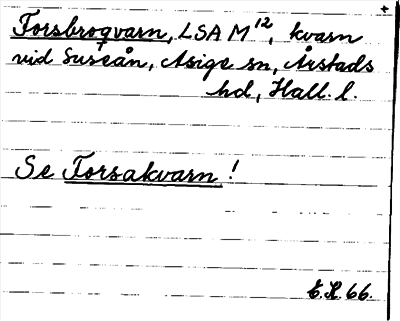 Forsbroqvarn, LSA M¹², kvarn
vid Suseån, Asige sn, Årstads
hd, Hall. l.
Se Forsakvarn!
66.